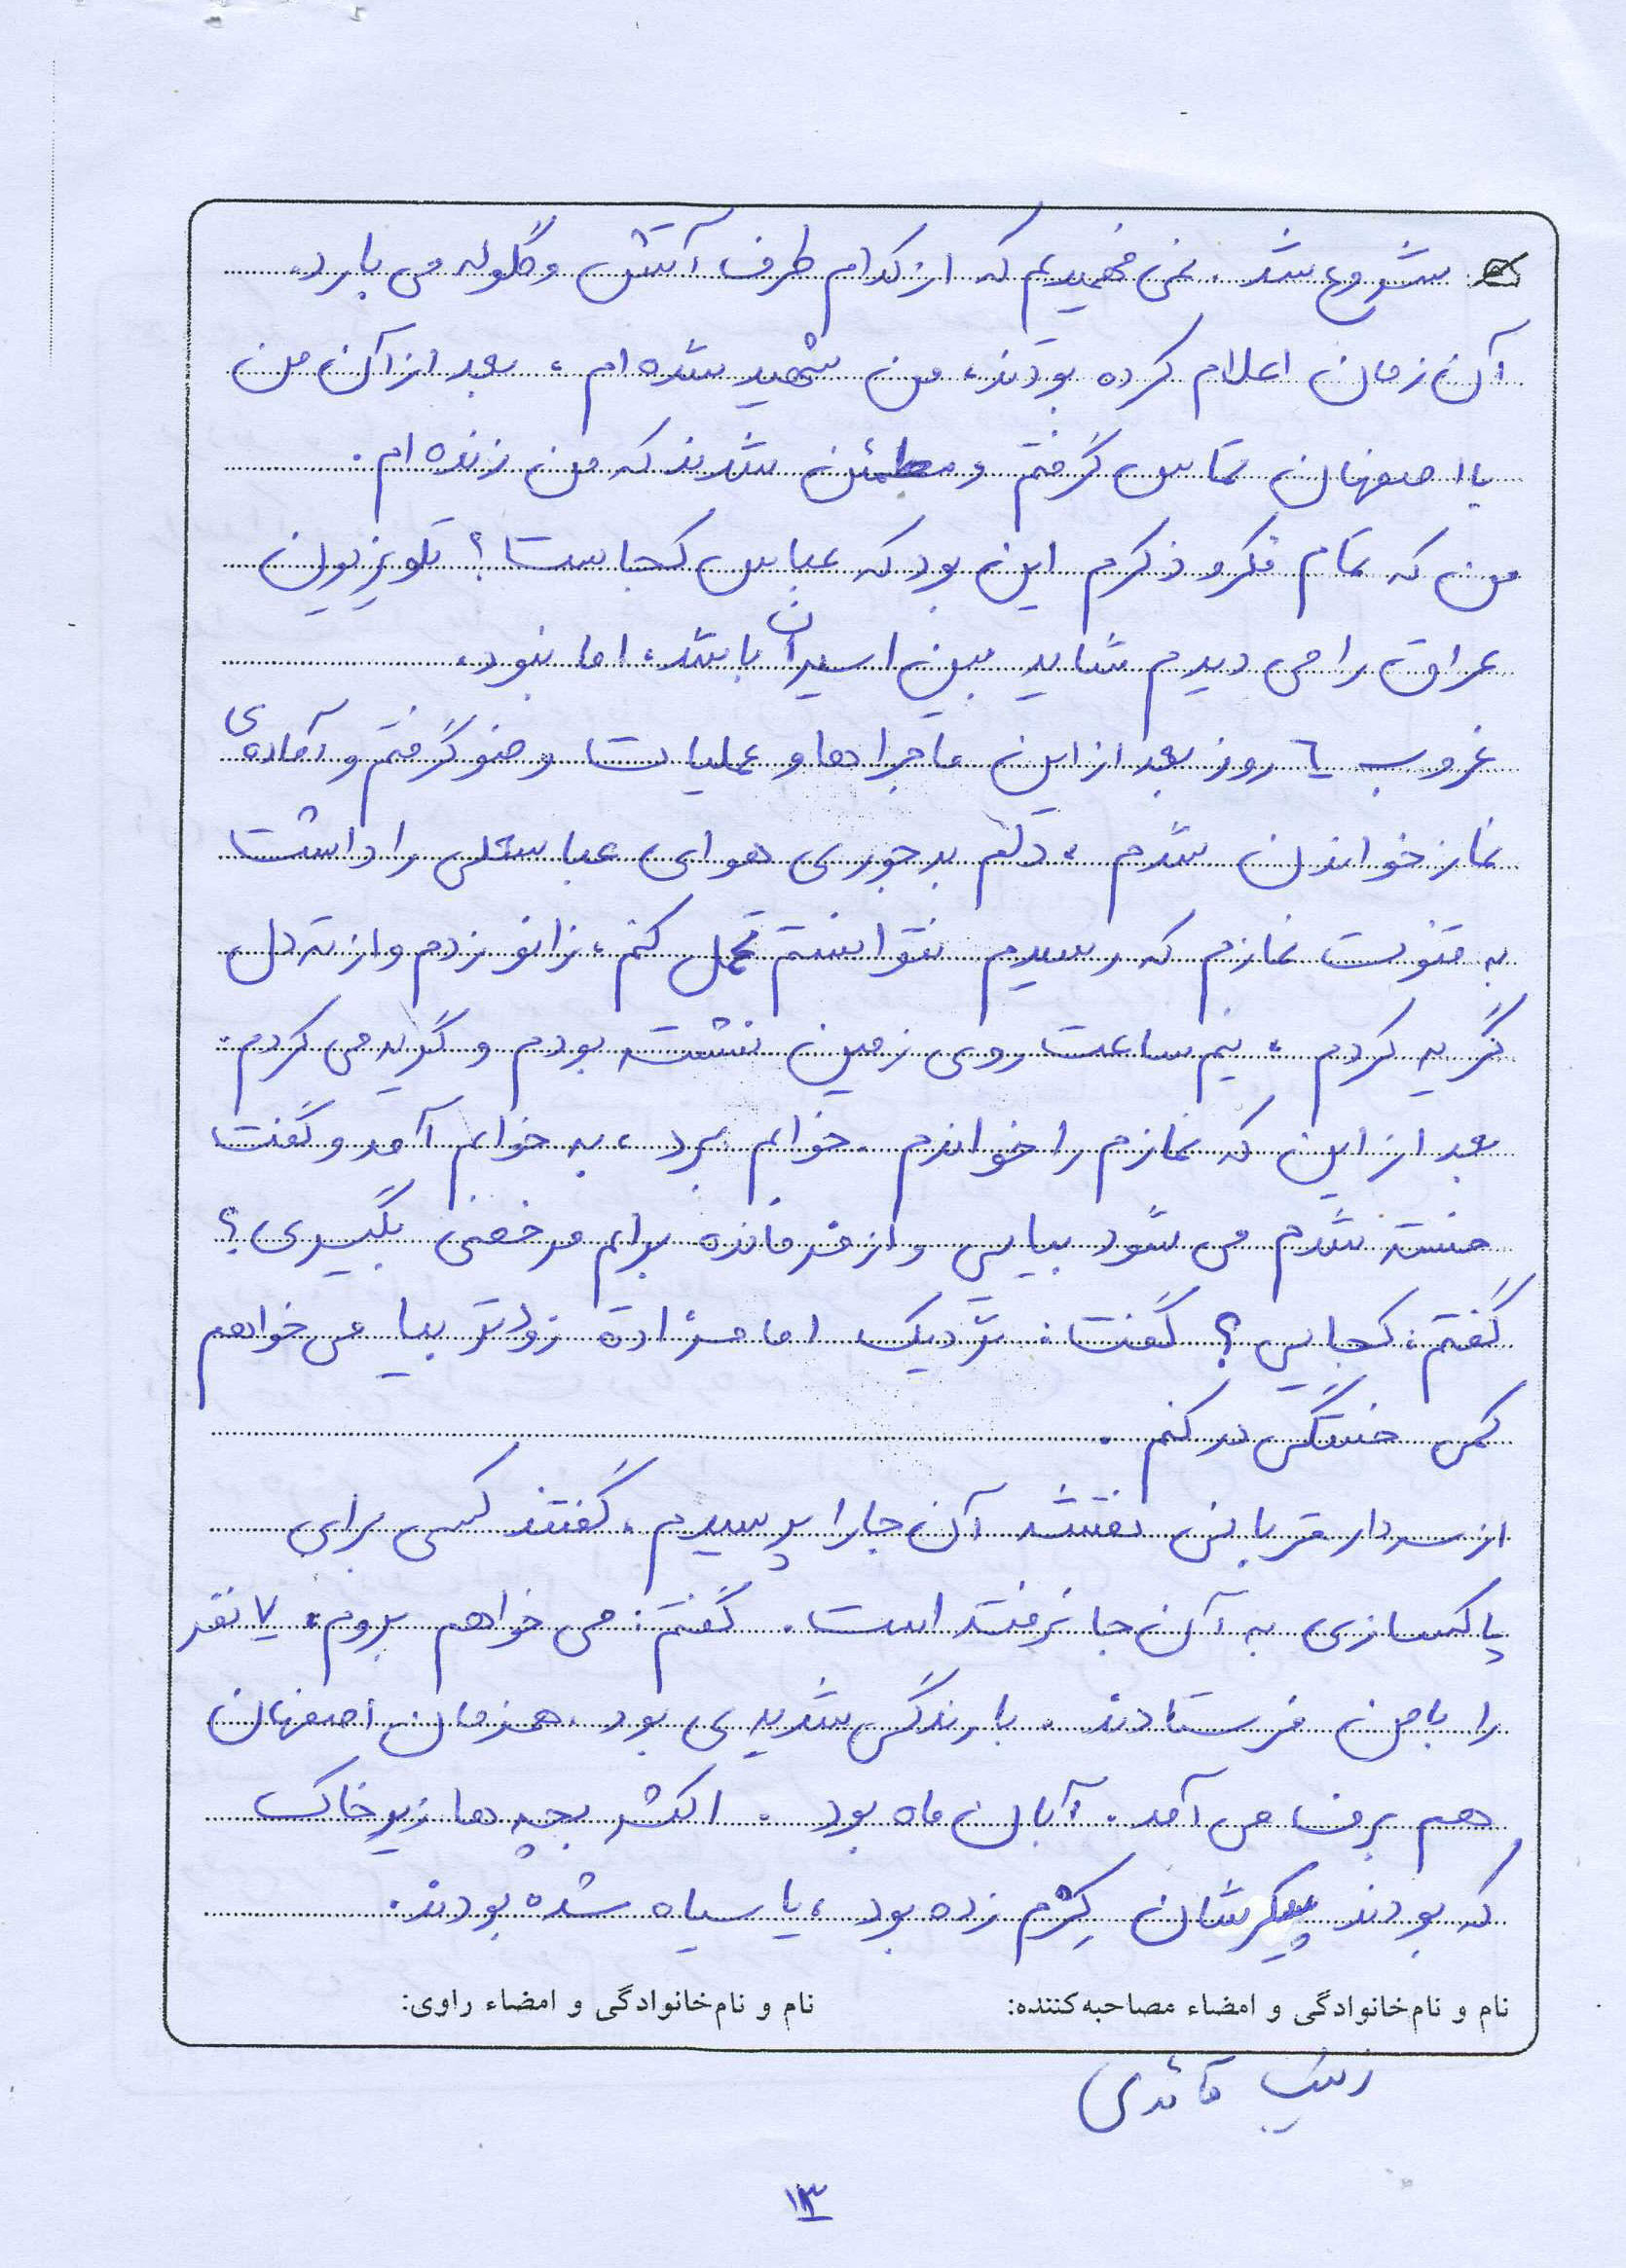 شروع شد. نمی فهمیدیم که از کدام طرف آتش و گلوله می بارد.
آن زمان اعلام کرده بودند، من شهید شده ام، بعد از آن من
با اصفهان تماس گرفتم و مطمئن شدند که من زنده ام.
من که تمام فکر و ذکرم این بود که عباس کجاست؟ تلویزیون
عراق را می دیدم شاید بین اسیران باشد، اما نبود.
غروب ٦ روز بعد از این ماجراها و عملیات وضو گرفتم و آماده ی
نماز خواندن شدم. دلم بدجوری هوای عباسعلی را داشت
به قنوت نمازم که رسیدم نتوانستم تحمل کنم، زانو زدم و از ته دل
گریه کردم. نیم ساعت روی زمین نشسته بودم و گریه می کردم.
بعد از این که نمازم را خواندم. خوابم برد، به خوابم آمد و گفت
خسته شدم می شود بیایی و از فرمانده برایم مرخصی بگیری؟
گفتم: کجایی؟ گفت: نزدیک امامزاده زودتر بیا می خواهم
کمی خستگی در کنم.
از سردار قربانی نقشه آن جا را پرسیدم، گفتند کسی برای
پاکسازی به آن جا نرفته است. گفتم: می خواهم بروم، ۷ نفر
را با من فرستادند. بارندگی شدیدی بود. همزمان اصفهان
هم برف می آمد. آبان ماه بود. اکثر بچه ها زیر خاک
که بودند پیکرشان کِرم زده بود، یا سیاه شده بودند.
نام و نام‌خانوادگی و امضاء مصاحبه‌کننده: نام و نام‌خانوادگی و امضاء راوی:
زینب قائدی
۱۳